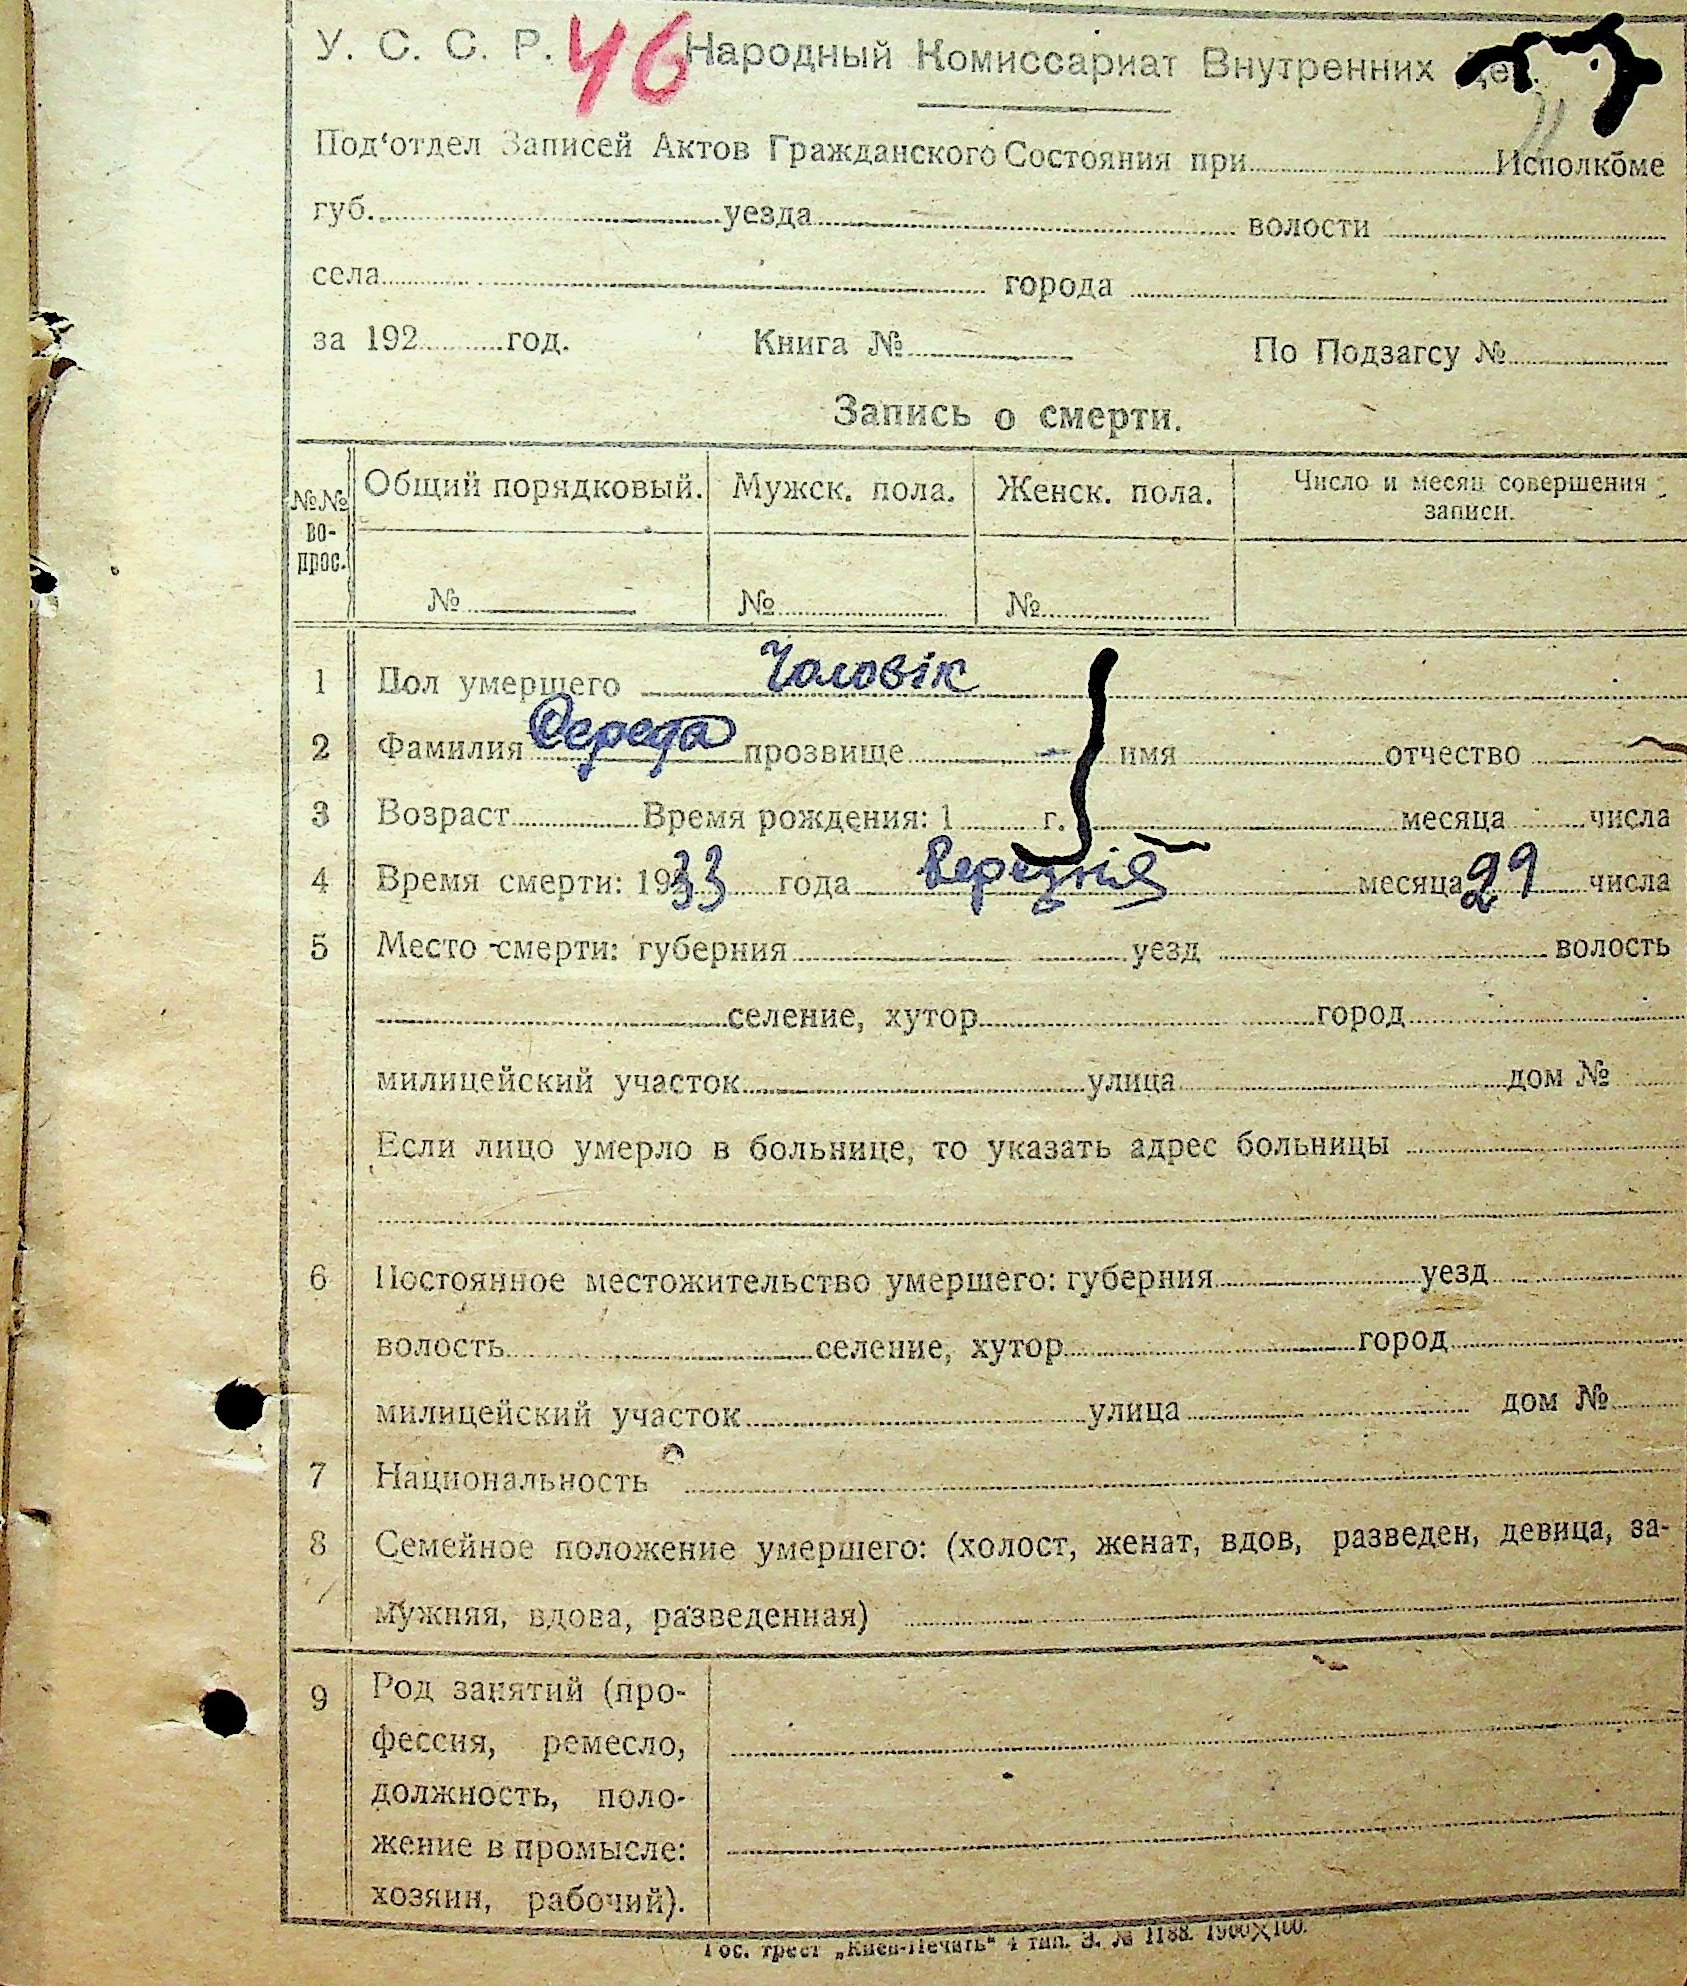 У. С. С. Р. 46 Народный Комиссариат Внутренних Дел.
Под'отдел Записей Актов Гражданского Состояния при Исполкоме
губ. уезда волости
села города
за 192 год. Книга № По Подзагсу №
Запись о смерти.
№№ во-прос. Общий порядковый. Мужск. пола. Женск. пола. Число и месяц совершения записи.
№ № №
1 Пол умершего Чоловік
2 Фамилия Середа прозвище имя отчество
3 Возраст Время рождения: 1 г. месяца числа
4 Время смерти: 1933 года Березня месяца 29 числа
5 Место смерти: губерния уезд волость
селение, хутор город
милицейский участок улица дом №
Если лицо умерло в больнице, то указать адрес больницы
6 Постоянное местожительство умершего: губерния уезд
волость селение, хутор город
милицейский участок улица дом №
7 Национальность
8 Семейное положение умершего: (холост, женат, вдов, разведен, девица, за-
мужняя, вдова, разведенная)
9 Род занятий (про-
фессия, ремесло,
должность, поло-
жение в промысле:
хозяин, рабочий).
Гос. трест „Киев-Печать“ 4 тип. З. № 1188. 1900X100.